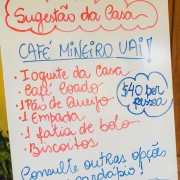 Sugestão da Casa
CAFÉ MINEIRO UAI!
• Iogurte da Casa
• Café Coado
• 1 Pão de Queijo
• 1 Empada
• 1 fatia de bolo
• Biscoitos
$40 por
pessoa
Consulte outras opções
cardápio